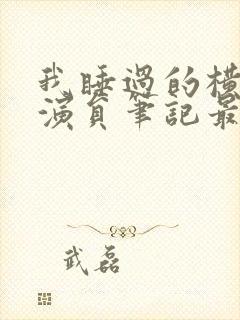 我睡過的橫
演員筆記最
武磊